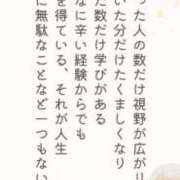 った人の数だけ視野が広がり
いた分だけたくましくなり
た数だけ学びがある
なに辛い経験からでも
を得ている、それが人生
に無駄なことなど一つもない